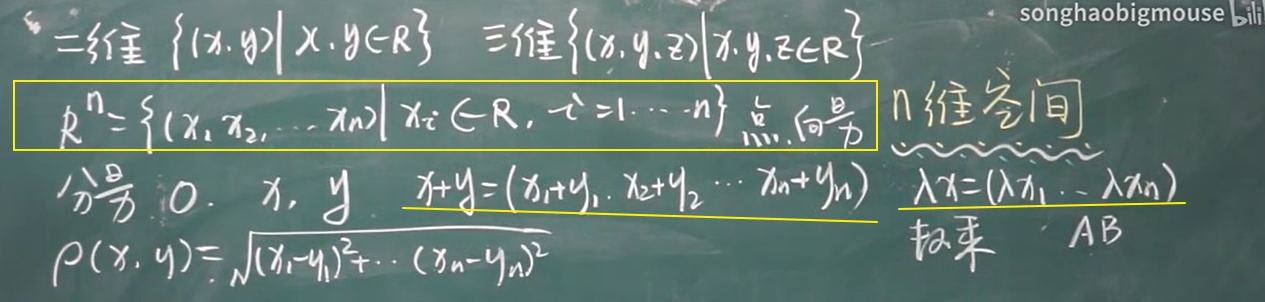 songhaobigmouse bili
二维 {(x.y)|x.y∈R} 三维{(x.y.z)|x.y.z∈R}
Rⁿ={(x₁ x₂,…xₙ)|xᵢ∈R, i=1……n} 点.向量 n维空间
分量 0. x, y x+y=(x₁+y₁. x₂+y₂ … xₙ+yₙ) λx=(λx₁ … λxₙ)
ρ(x,y)=√(x₁-y₁)²+…(xₙ-yₙ)² 数乘 AB